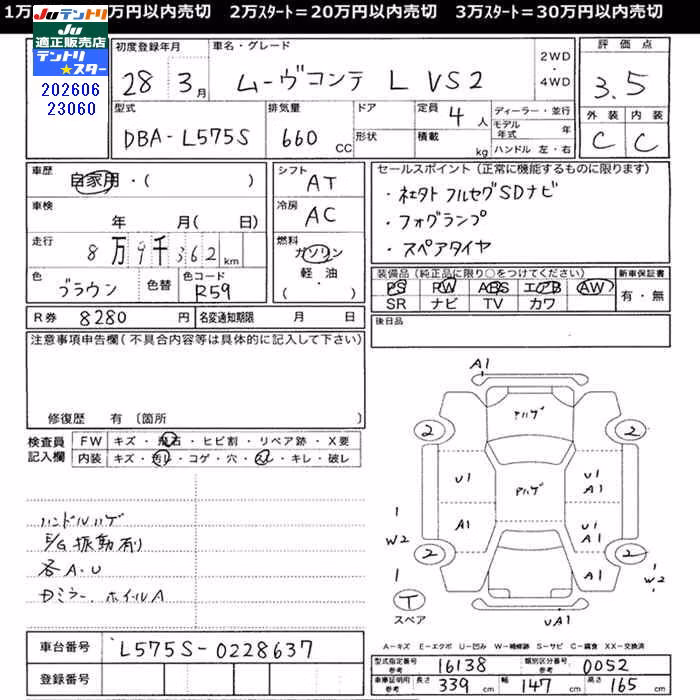 1万 万円以内売切 2万ｽﾀｰﾄ＝20万円以内売切 3万ｽﾀｰﾄ＝30万円以内売切
Juテントリ
Ju
適正販売店
テントリ
★スター
202606
23060
初度登録年月 車名・グレード 評価点
28 3月 ムーヴコンテ L VS2 2WD 4WD 3.5
型式 排気量 ドア 定員 4人 ディーラー・並行 外装 内装
DBA-L575S 660 CC 形状 積載 kg モデル年式 年 C C
ハンドル 左・右
車歴 自家用・( )
シフト AT
セールスポイント（正常に機能するものに限ります）
・ネェタト フルセグSDナビ
・フォグランプ
・スペアタイヤ
車検 年 月( 日)
冷房 AC
走行 8万9千362km
燃料 ガソリン 軽・油 ・( )
色 ブラウン 色替 色コード R59
装備品（純正品に限り○をつけてください） 新車保証書
PS PW ABS エアB AW 有・無
SR ナビ TV カワ
R券 8280円 名変通知期限 月 日
後日品
注意事項申告欄（不具合内容等は具体的に記入して下さい）
修復歴 有 〔箇所 〕
検査員記入欄 FW キズ・飛石・ヒビ割・リペア跡・X要
内装 キズ・汚レ・コゲ・穴・スレ・キレ・破レ
ハンドルハゲ
E/G振動有り
各A・U
Dミラー、ホイールA
A1
アハゲ
2 2
U1 アハゲ U1 A1
A1 U1 A1
1 W2 1
2 2
A1
1 W2
T
スペア
UA1
車台番号 L575S-0228637
登録番号
A－キズ E－エクボ U－凹み W－補修跡 S－サビ C－腐食 XX－交換済
型式指定番号 参考 16138 類別区分番号 参考 0052
車庫証明用 参考 長さ 339cm 幅 147cm 高さ 165cm